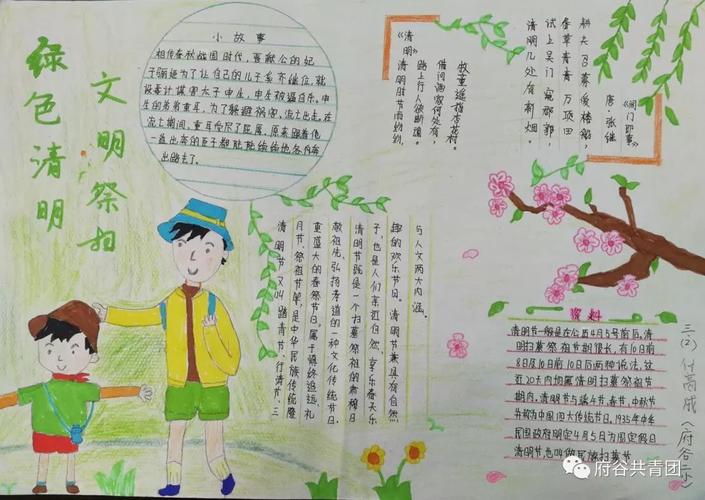 绿色清明
文明祭扫
小故事
相传春秋战国时代，晋献公的妃
子骊姬为了让自己的儿子奚齐继位，就
设毒计谋害太子申生，申生被逼自杀。申
生的弟弟重耳，为了躲避祸害，流亡出走。在
流亡期间，重耳受尽了屈辱。原来跟着他
一道出奔的臣子都陆陆续续地各奔
出路去了。
《清明》
清明时节雨纷纷，
路上行人欲断魂。
借问酒家何处有，
牧童遥指杏花村。
《阊门即事》
唐·张继
耕夫召募爱楼船，
春草青青万项田
试上吴门窥郡郭，
清明几处有新烟。
清明节又叫踏青节、行清节、三
月节、祭祖节等，是中华民族传统隆
重盛大的春祭节日，属于慎终追远、礼
敬祖先、弘扬孝道的一种文化传统节日。
清明节既是一个扫墓祭祖的肃穆日
子，也是人们亲近自然、享乐春天乐
趣的欢乐节日。清明节兼具有自然
与人文两大内涵。
资料
清明节一般是在公历4月5号前后，清
明扫墓祭祖节期很长，有10日前
8日后及10日前10日后两种说法，这
近20天内均属清明扫墓祭祖节
期内，清明节与端午节、春节、中秋节
并称为中国四大传统节日，1935年中华
民国政府明定4月5日为国定假日
清明节，也叫做民族扫墓节
三(2) 付高成(府谷二小)
府谷共青团